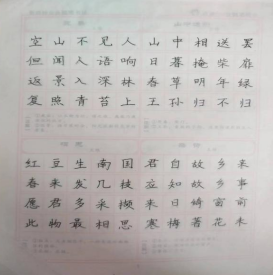 空山不见人 山中相送罢
但闻人语响 日暮掩柴扉
返景入深林 春草明年绿
复照青苔上 王孙归不归
红豆生南国 君自故乡来
春来发几枝 应知故乡事
愿君多采撷 来日绮窗前
此物最相思 寒梅著花未